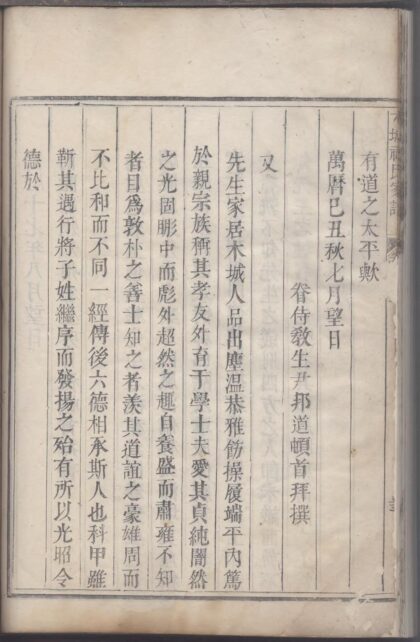 有道之太平歟
萬曆己丑秋七月望日
眷侍教生尹邦道頓首拜撰
又
先生家居木城人品出塵温恭雅飭操履端平內篤
於親宗族稱其孝友外育于學士夫愛其貞純闇然
之光固彪中而彪外超然之趣自養盛而肅雍不知
者目為敦朴之善士知之者羡其道誼之豪雄周而
不比和而不同一經傳後六德相承斯人也科甲雖
靳其遇行將子姓繼序而發揚之殆有所以光昭令
德於
木城
氏家譜